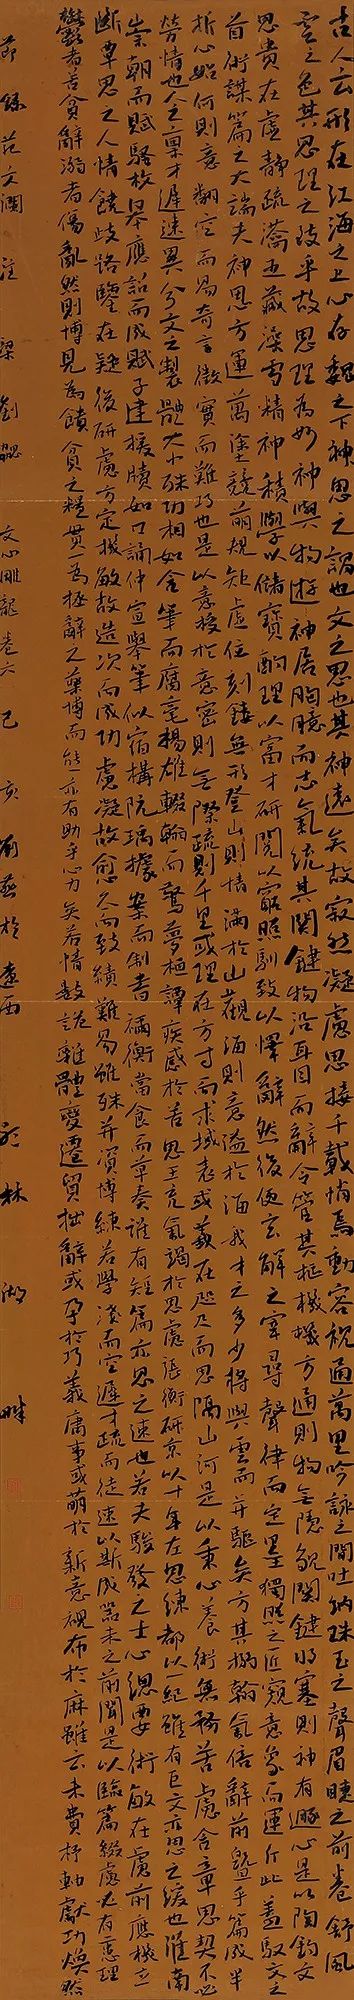 古人云形在江海之上心存魏之下神思之謂也文之思也其神遠矣故寂然凝慮思接千載悄焉動容視通萬里吟詠之間吐納珠玉之聲眉睫之前卷舒風
雲之色其思理之致乎故思理為妙神與物遊神居胸臆而志氣統其關鍵物沿耳目而辭令管其樞機機方通則物無隱貌關鍵將塞則神有遯心是以陶鈞文
思貴在虛靜疏瀹五藏澡雪精神積學以儲寶酌理以富才研閱以窮照馴致以懌辭然後使玄解之宰尋聲律而定墨獨照之匠窺意象而運斤此蓋馭文之
首術謀篇之大端夫神思方運萬塗競萌規矩虛位刻鏤無形登山則情滿於山觀海則意溢於海我才之多少將與雲而并驅矣方其搦翰氣倍辭前暨乎篇成半
折心始何則意翻空而易奇言徵實而難巧也是以意授於意密則無際疏則千里或理在方寸而求域表或義在咫尺而思隔山河是以秉心養術無務苦慮含章思契不必
勞情也人之稟才遲速異分文之製體大小殊功相如含筆而腐毫揚雄輟翰而驚夢桓譚疾感於苦思王充氣竭於思慮張衡研京以十年左思練都以一紀雖有巨文亦思之緩也淮南
崇朝而賦騷枚皋應詔而成賦子建援牘如口誦仲宣舉筆似宿構阮瑀據案而制書禰衡當食而草奏雖有短篇亦思之速也若夫駿發之士心總要術敏在慮前應機立
斷覃思之人情饒歧路鑒在疑後研慮方定機敏故造次而成功慮疑故愈久而致績難易雖殊并資博練若學淺而空遲才疏而徒速以斯成器未之前聞是以臨篇綴慮必有二患理
鬱者苦貧辭溺者傷亂然則博見為饋貧之糧貫一為拯亂之藥博而能一亦有助乎心力矣若情數詭雜體變遷貿拙辭或孕於巧義庸事或萌於新意視布於麻雖云未費杼軸獻功煥然
節錄范文瀾注梁劉勰文心雕龍卷六己亥於遼西林湖畔